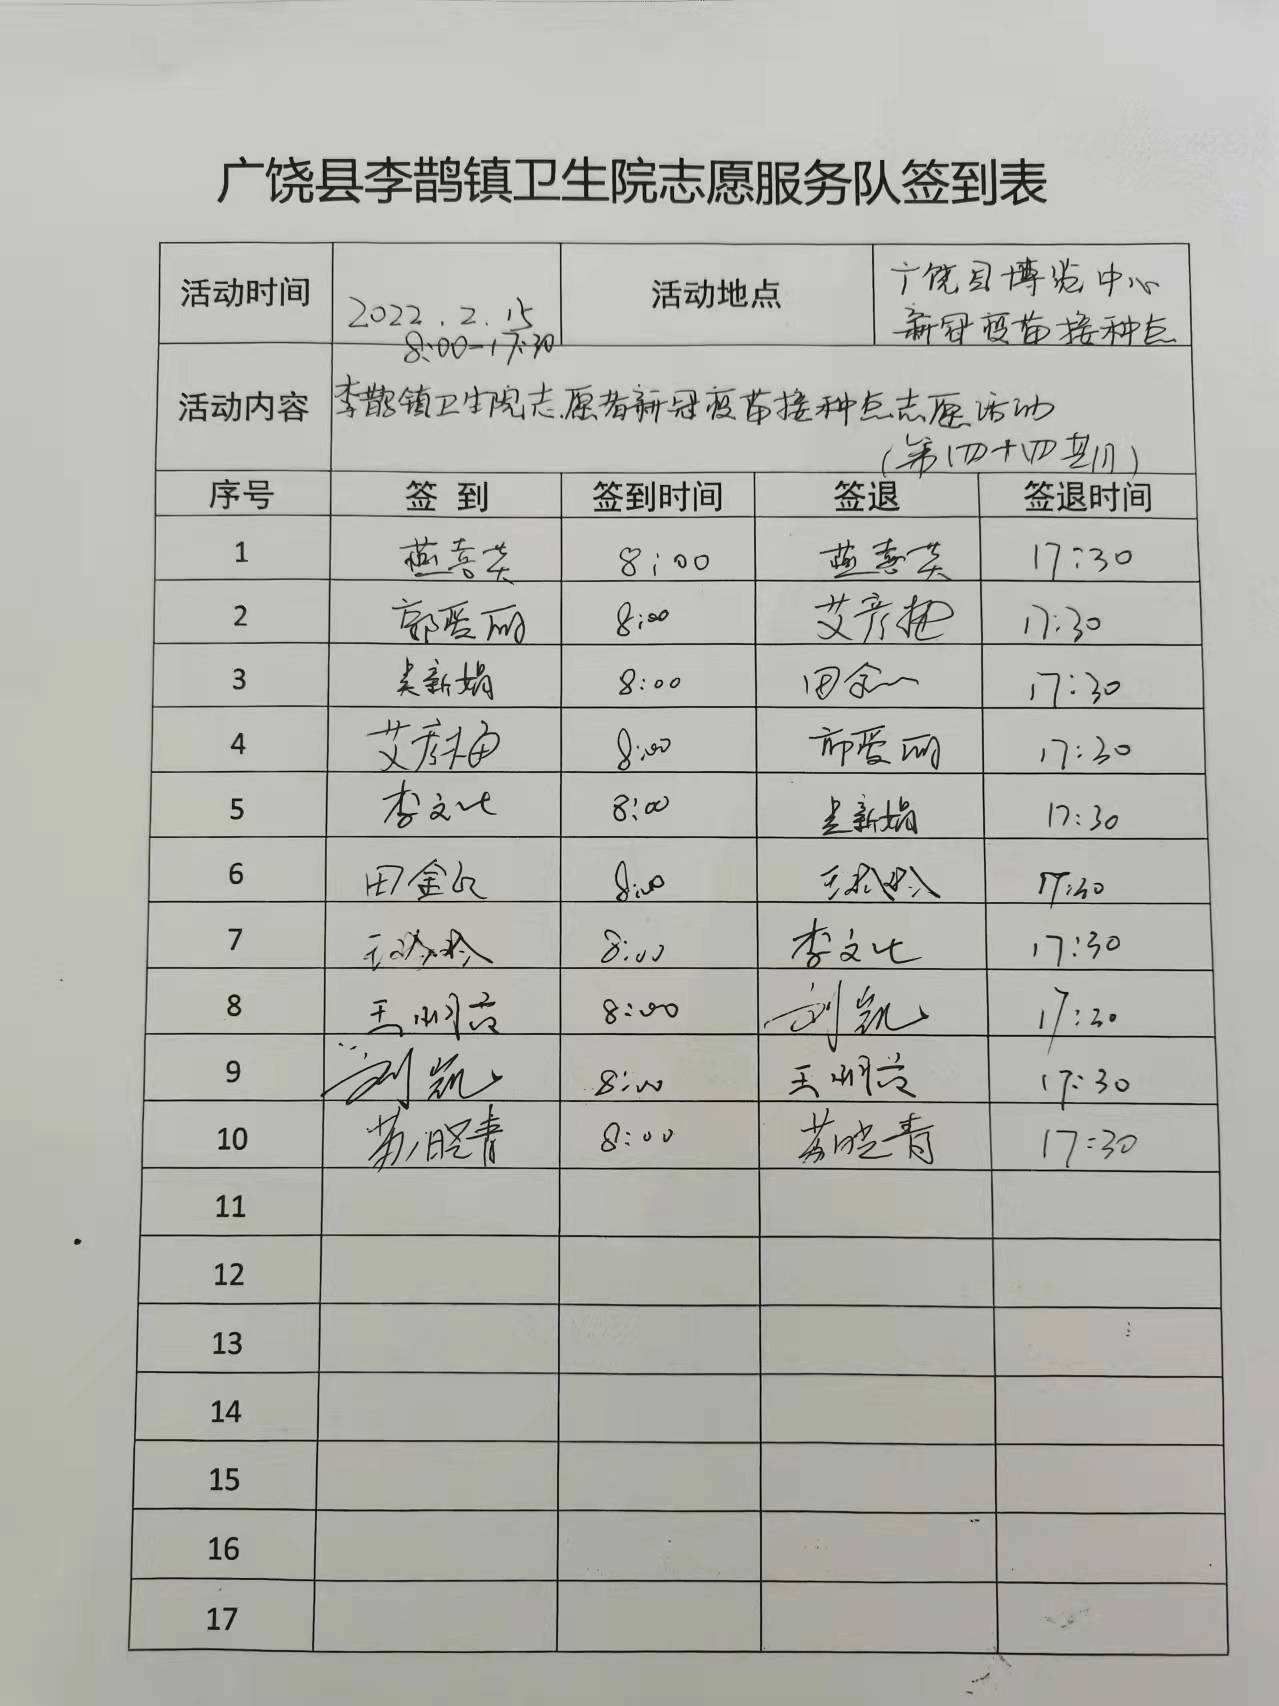 广饶县李鹊镇卫生院志愿服务队签到表
活动时间 2022.2.15 8:00-17:30 活动地点 广饶县博览中心
新冠疫苗接种点
活动内容 李鹊镇卫生院志愿者新冠疫苗接种点志愿活动
(第四十四期)
序号 签到 签到时间 签退 签退时间
1 燕喜英 8:00 燕喜英 17:30
2 郭爱丽 8:00 艾彦梅 17:30
3 新娟 8:00 田金 17:30
4 艾彦梅 8:00 郭爱丽 17:30
5 李文 8:00 新娟 17:30
6 田金 8:00 王玲玲 17:30
7 王玲玲 8:00 李文 17:30
8 王明 8:00 刘凯 17:30
9 刘凯 8:00 王明 17:30
10 苏晓青 8:00 苏晓青 17:30
11
12
13
14
15
16
17